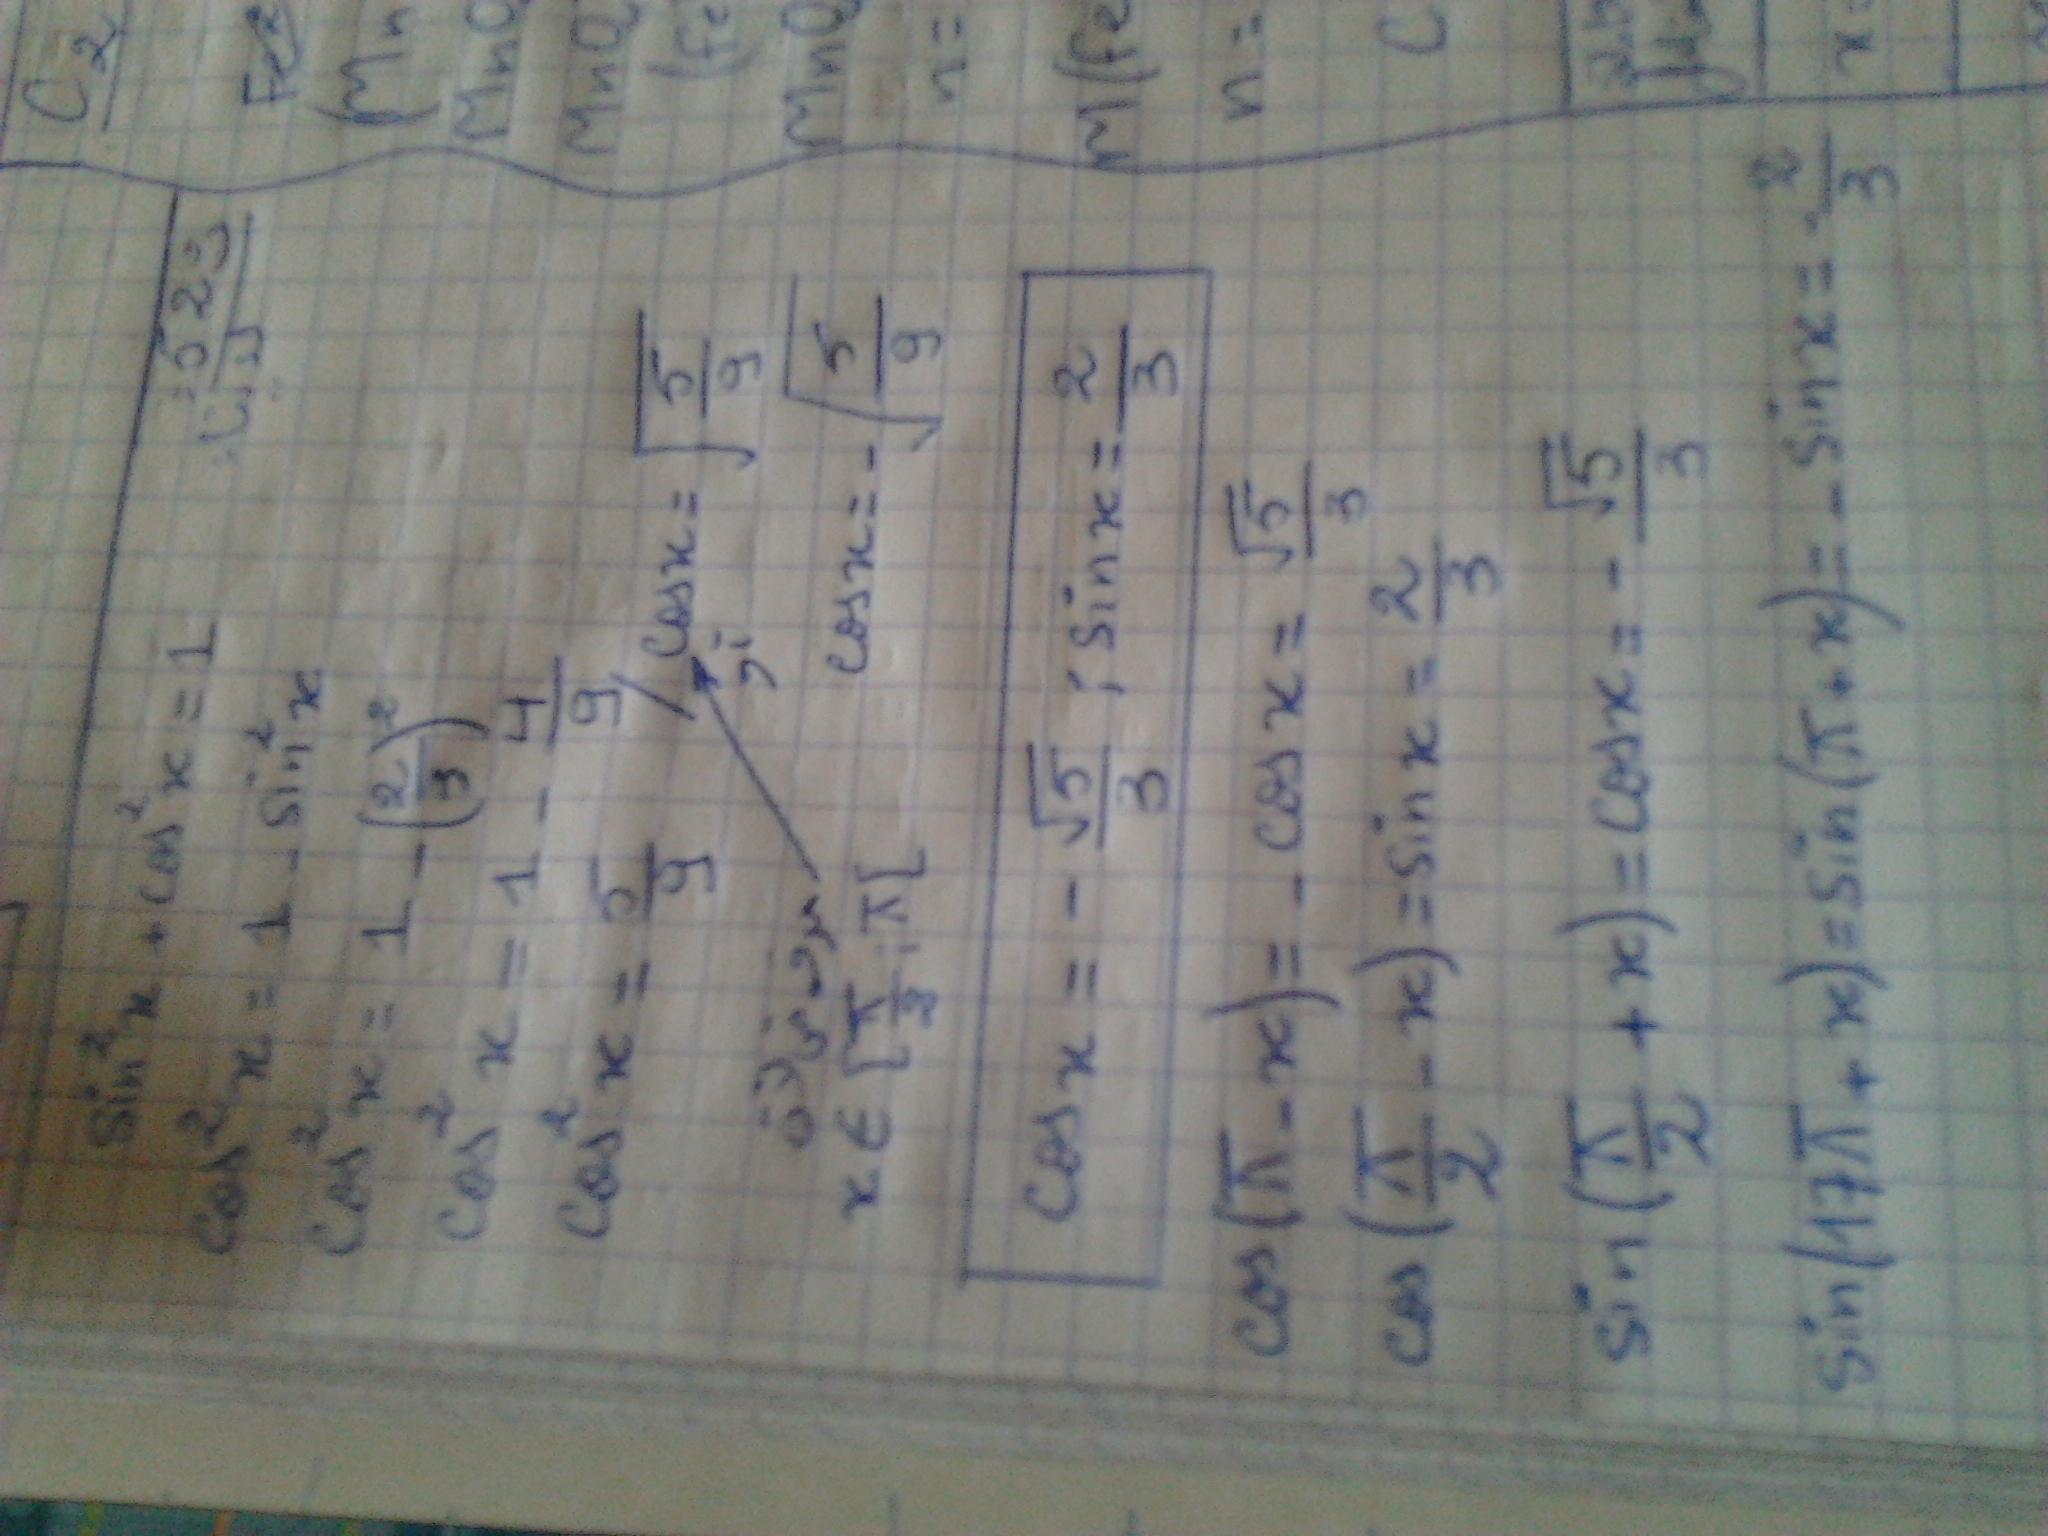 sin²x + cos²x = 1
cos²x = 1 - sin²x
cos²x = 1 - (2/3)²
cos²x = 1 - 4/9
cos²x = 5/9 / cosx = √5/9
cosx = -√5/9
x ∈ [π/2 ; π[
cosx = - √5/3 ; sinx = 2/3
cos(π - x) = - cosx = √5/3
cos(π/2 - x) = sinx = 2/3
sin(π/2 + x) = cosx = - √5/3
sin(17π + x) = sin(π + x) = - sinx = - 2/3
C2
(Mn
MnO
MnO
(Fe
MnO
n =
M(Fe
n =
C
x =